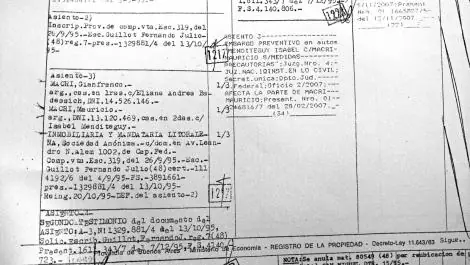 Asiento-2)
Inscrip.Prov.de compv.vta.Esc.319,del
26/9/95-Esc.Guillot Fernando Julio-
(48)reg.7-pres-1329881/4 del 13/10
95-
1217
Asiento-3)
MACRI,Gianfranco.-
arg.,cas.en 1ras.c/Eliana Andres Ba-
dessich,DNI.14.526.146.- 1/3
MACRI,Mauricio.-
arg.,DNI.13.120.469,cas.en 2das.c/
Isabel Menditeguy.- 1/3
INMOBILIARIA Y MANDATARIA LITORALE-
ÑA,Sociedad Anónima.-c/dom.en Av.Lean-
dro N.Alem 1002,de Cap.Fed.- 1/3
Comp.vta.Esc.319,del 26/9/95-Esc.-
Guillot Fernando Julio(48)cert.-111
4192/6 del 4/9/95-FS.-3891661-
pres.-1329881/4 del 13/10/95-
Reing.20/10/95-DEF.del asiento-2)
1217
ASIENTO-4-
SEGUNDO TESTIMONIO del documento del
ASIENTO:A-3,Nº1329.881/4 del 13/10/95,
F.S.4.140.806.-
ASIENTO 3
EMBARGO PREVENTIVO en autos
MENDITEGUY ISABEL C/MACRI-
MAURICIO S/MEDIDAS-
PRECAUTORIAS";Juzg.Nro. 4-
JUZ.NAC.1@INST.EN LO CIVIL;
Secret.unica;Dpto.Jud.
C.Federal;Oficio 2/2007;
AFECTA LA PARTE DE MACRI-
MAURICIO;Present. Nro. 0)-
del 28/02/2007._
(34)
del 13/11/2007.
Provincia de Buenos Aires Ministerio de Economía - REGISTRO DE LA PROPIEDAD - Decreto-Ley 11.643/63
NOTA:Se anula mat. 80549 (48) por reubicacion de